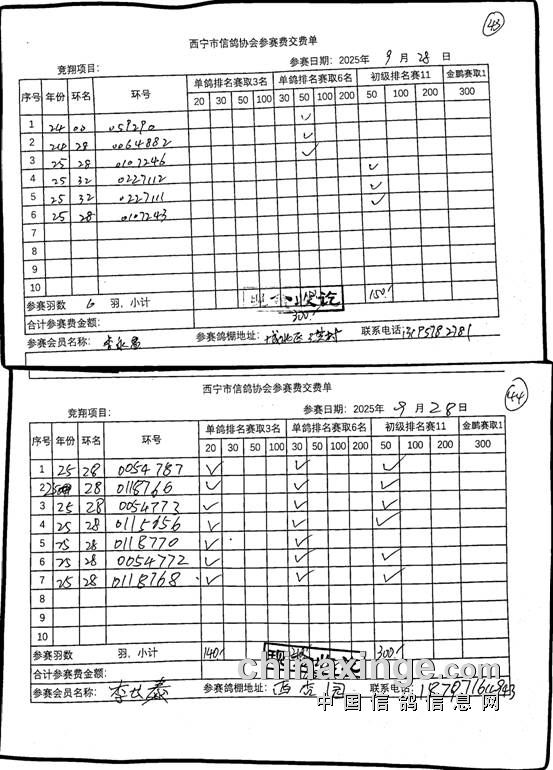 43
西宁市信鸽协会参赛费交费单
竞翔项目： 参赛日期：2025年 9 月 28 日
序号 年份 环名 环号 单鸽排名赛取3名 单鸽排名赛取6名 初级排名赛11 金鹏赛取1
20 30 50 100 30 50 100 200 50 100 200 300
1 24 00 059290 ✓
2 24 28 0064882 ✓
3 25 28 0107246 ✓ ✓
4 25 32 0227112 ✓
5 25 32 0227111 ✓
6 25 28 0107243
7
8
9
10
参赛羽数 6 羽，小计 150
合计参赛费金额： 300
参赛会员名称： 参赛鸽棚地址： 联系电话：
44
西宁市信鸽协会参赛费交费单
竞翔项目： 参赛日期：2025年 9 月 28 日
序号 年份 环名 环号 单鸽排名赛取3名 单鸽排名赛取6名 初级排名赛11 金鹏赛取1
20 30 50 100 30 50 100 200 50 100 200 300
1 25 28 0054787 ✓ ✓ ✓
2 28 0118766 ✓ ✓ ✓
3 25 28 0054773 ✓ ✓ ✓
4 25 28 ✓ ✓ ✓
5 25 28 0118770 ✓ ✓
6 25 28 0054772 ✓ ✓ ✓
7 25 28 0118768 ✓ ✓ ✓
8
9
10
参赛羽数 羽，小计 140 300
合计参赛费金额：
参赛会员名称： 李 参赛鸽棚地址： 西 园 联系电话：
chinaxinge.com
中国信鸽信息网